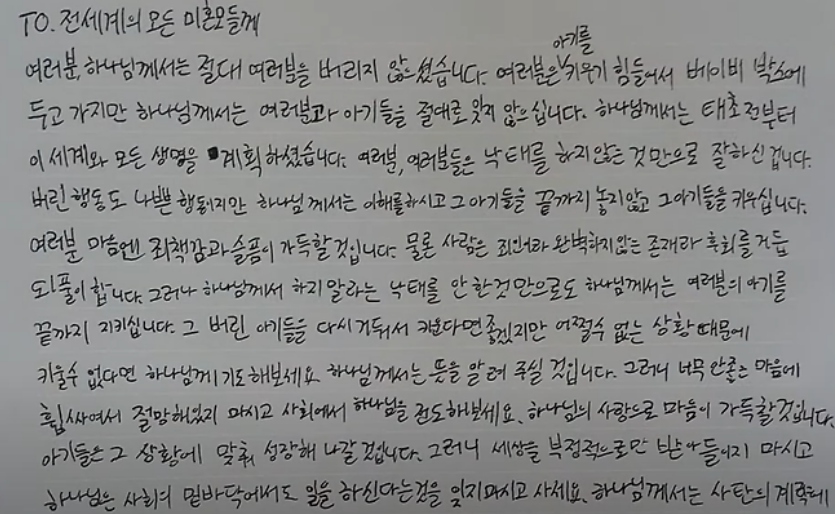 TO. 전세계의 모든 미혼모들께
여러분, 하나님께서는 절대 여러분을 버리지 않으셨습니다. 여러분은 아기를 키우기 힘들어서 베이비 박스에
두고 가지만 하나님께서는 여러분과 아기들을 절대로 잊지 않으십니다. 하나님께서는 태초전부터
이 세계와 모든 생명을 계획하셨습니다. 여러분, 여러분들은 낙태를 하지않는 것만으로 잘하신 겁니다.
버린 행동도 나쁜 행동이지만 하나님께서는 이해를하시고 그 아기들을 끝까지 놓지않고 그아기들을 키우십니다.
여러분 마음엔 죄책감과 슬픔이 가득할 것입니다. 물론 사람은 죄인이라 완벽하지않는 존재라 후회를 거듭
되풀이 합니다. 그러나 하나님께서 하지 말라는 낙태를 안 한것 만으로도 하나님께서는 여러분의 아기를
끝까지 지키십니다. 그 버린 아기들을 다시 거둬서 키운다면 좋겠지만 어쩔수 없는 상황 때문에
키울수 없다면 하나님께 기도해보세요. 하나님께서는 뜻을 알려 주실 것입니다. 그러니 너무 안좋은 마음에
휩싸여서 절망해있지 마시고 사회에서 하나님을 전도하보세요. 하나님의 사랑으로 마음이 가득할것입니다.
아기들은 그 상황에 맞춰 성장해 나갈 것입니다. 그러니 세상을 부정적으로만 받아들이지 마시고
하나님은 사회의 밑바닥에서도 일을 하신다는것을 잊지마시고 사세요. 하나님께서는 사탄의 계획에